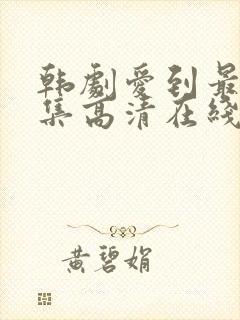 韩劇愛到最
集高清在綫
黄碧娟